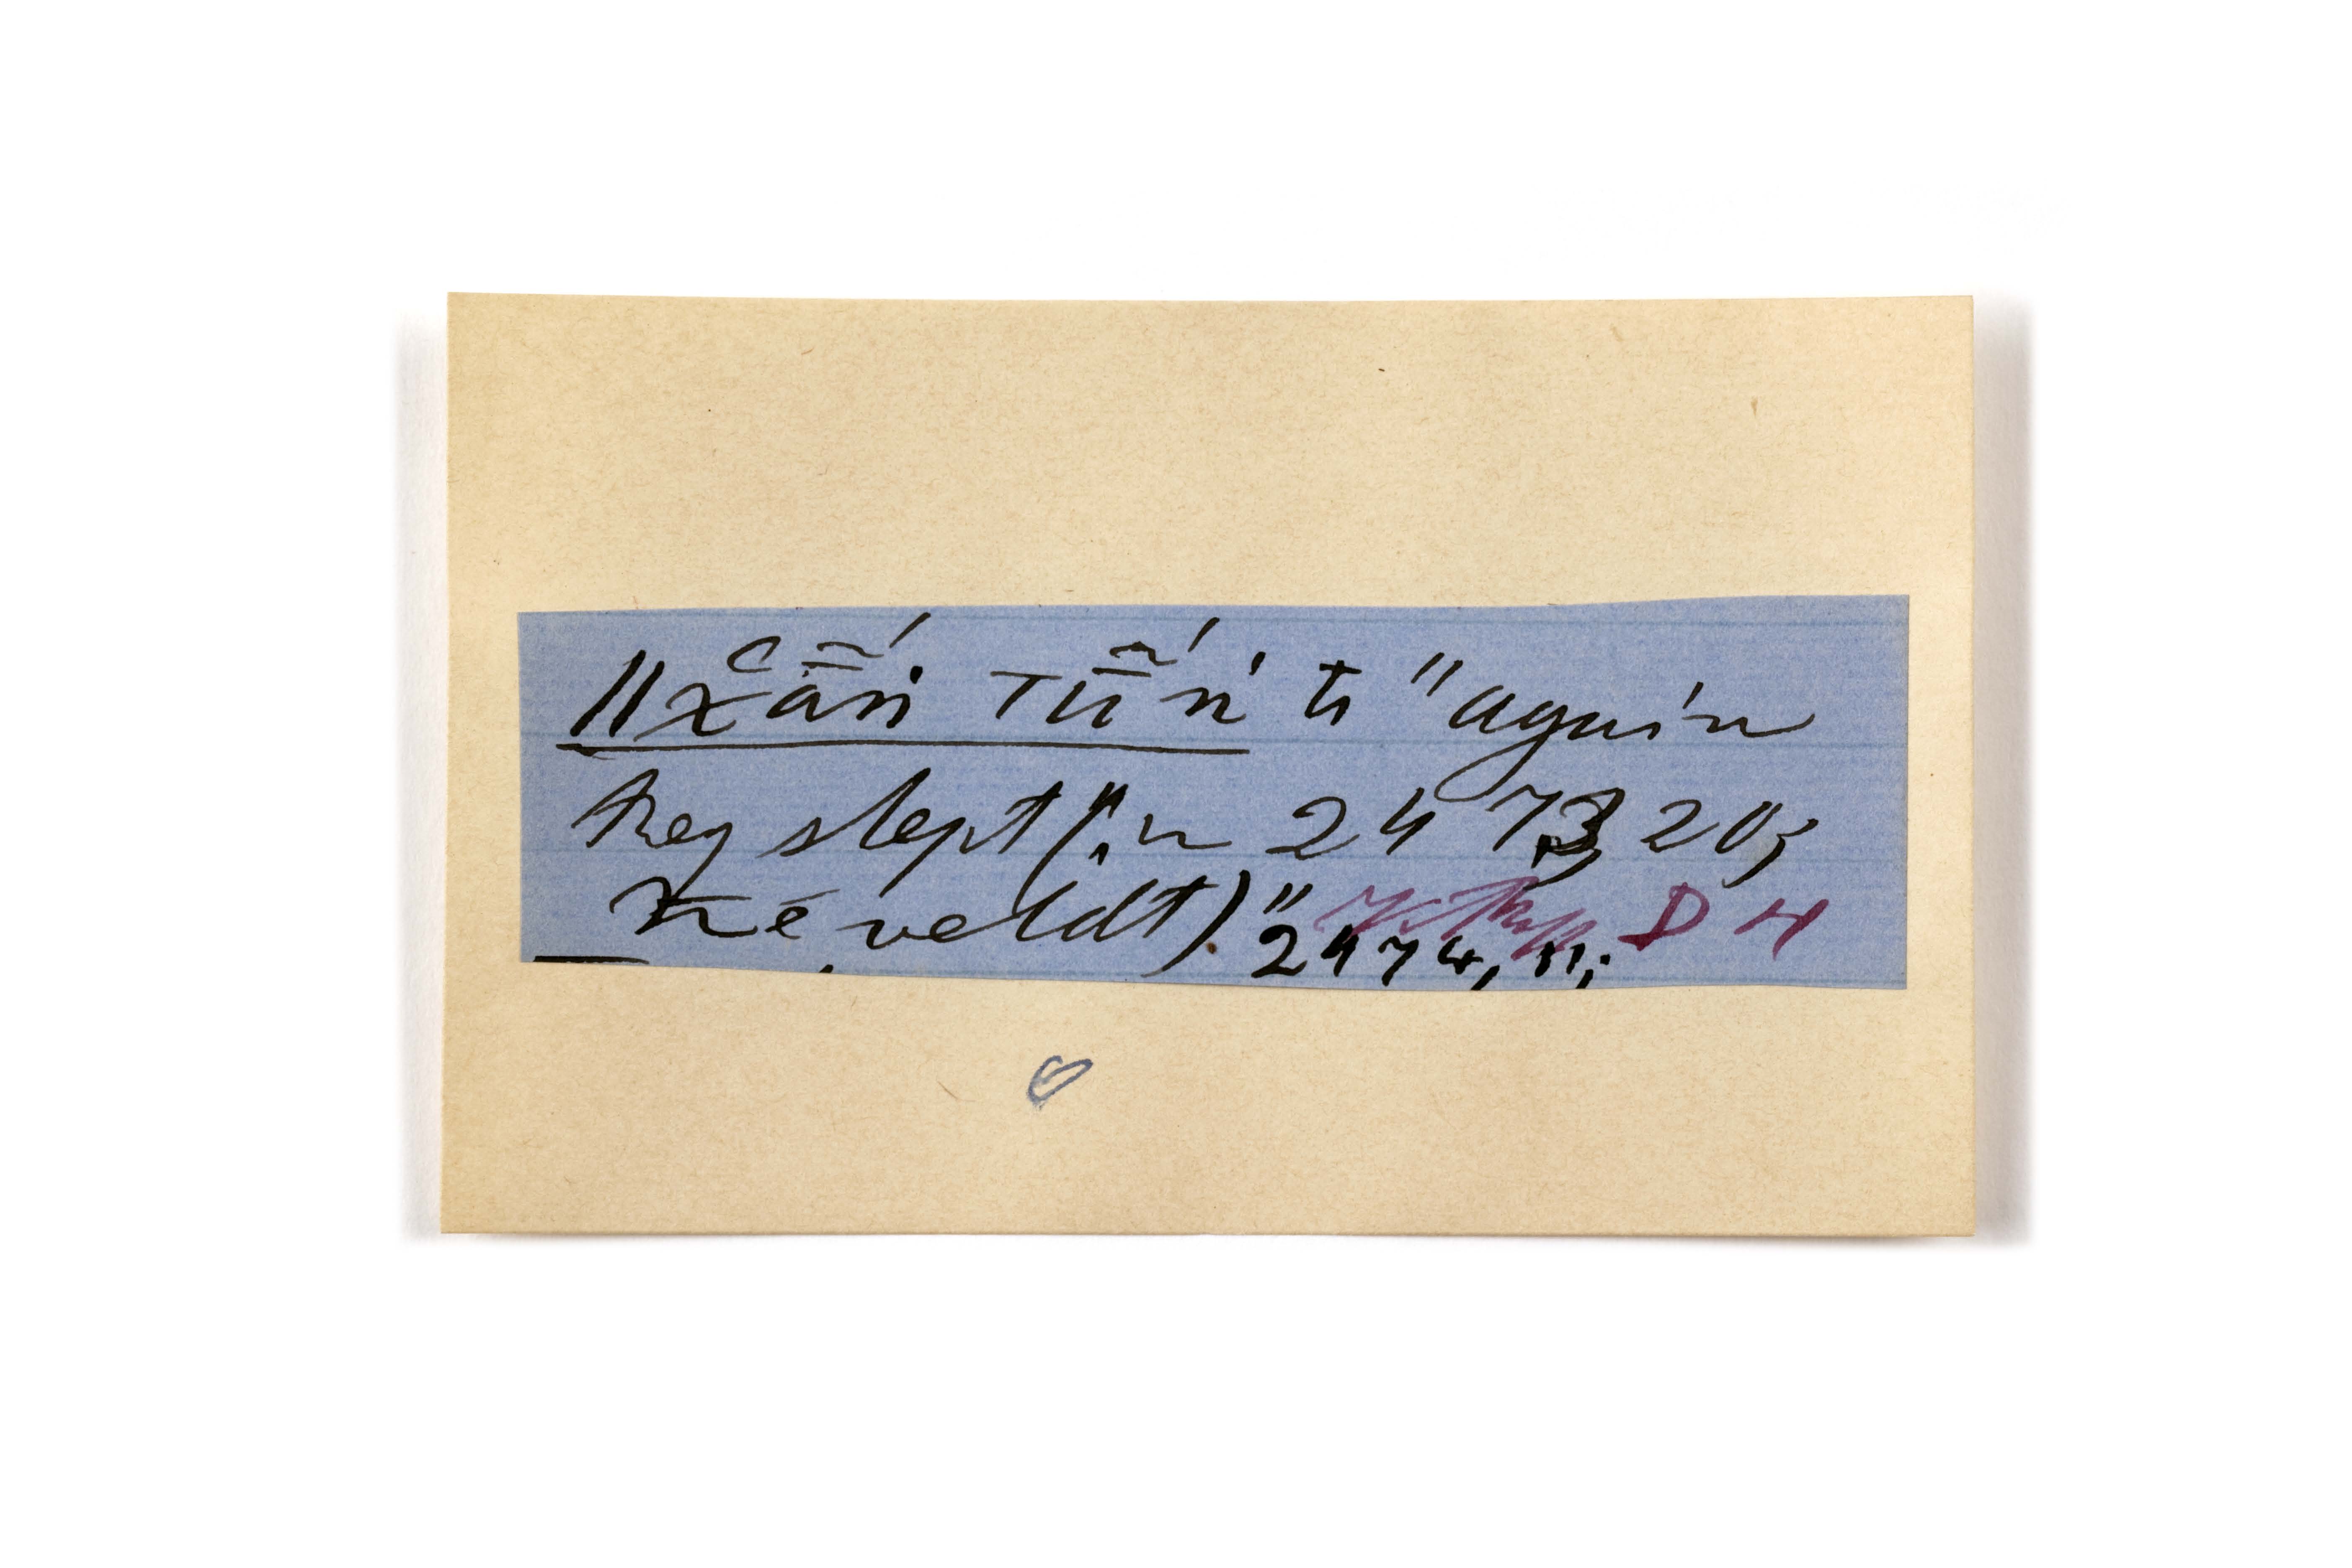 ǁχãń Tũń ti "again
they slept (in 2473, 20;
the veldt)"
2474, 11; D H